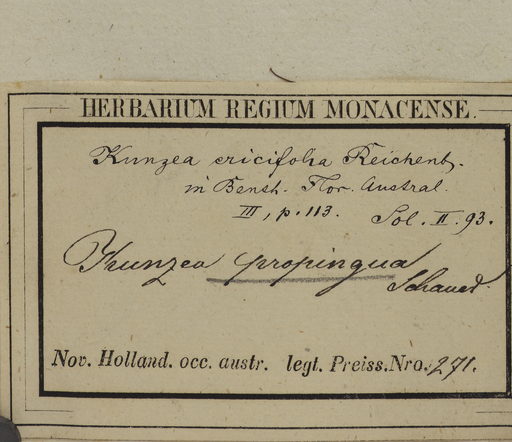 HERBARIUM REGIUM MONACENSE.
Kunzea ericifolia Reichenb.
in Benth. Flor. Austral.
III, p. 113. Sol. II. 93.
Kunzea propinqua
Schauer.
Nov. Holland. occ. austr. legt. Preiss. Nro. 271.